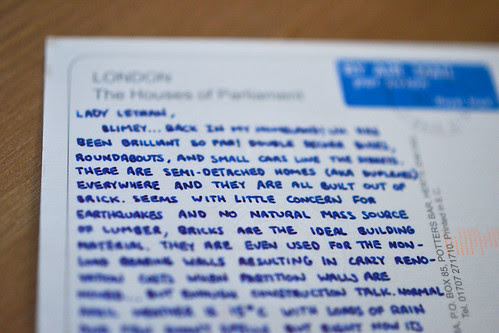 LONDON
The Houses of Parliament
BY AIR MAIL
par avion
Royal Mail
LADY LEYRAN,
BLIMEY... BACK IN MY HOMELAND! UK HAS
BEEN BRILLIANT SO FAR! DOUBLE DECKER BUSES,
ROUNDABOUTS, AND SMALL CARS LINE THE STREETS.
THERE ARE SEMI-DETACHED HOMES (AKA DUPLEXES)
EVERYWHERE AND THEY ARE ALL BUILT OUT OF
BRICK. SEEMS WITH LITTLE CONCERN FOR
EARTHQUAKES AND NO NATURAL MASS SOURCE
OF LUMBER, BRICKS ARE THE IDEAL BUILDING
MATERIAL. THEY ARE EVEN USED FOR THE NON-
LOAD BEARING WALLS RESULTING IN CRAZY RENO-
VATION COSTS WHEN PARTITION WALLS ARE
MOVED... BUT ENOUGH CONSTRUCTION TALK. NORMAL
WEATHER IS 15°C WITH LOADS OF RAIN
BUT RIGHT NOW IT'S
P.O. BOX 85, POTTERS BAR, HERTS,
TEL. 01707 271710. Printed in E.C.